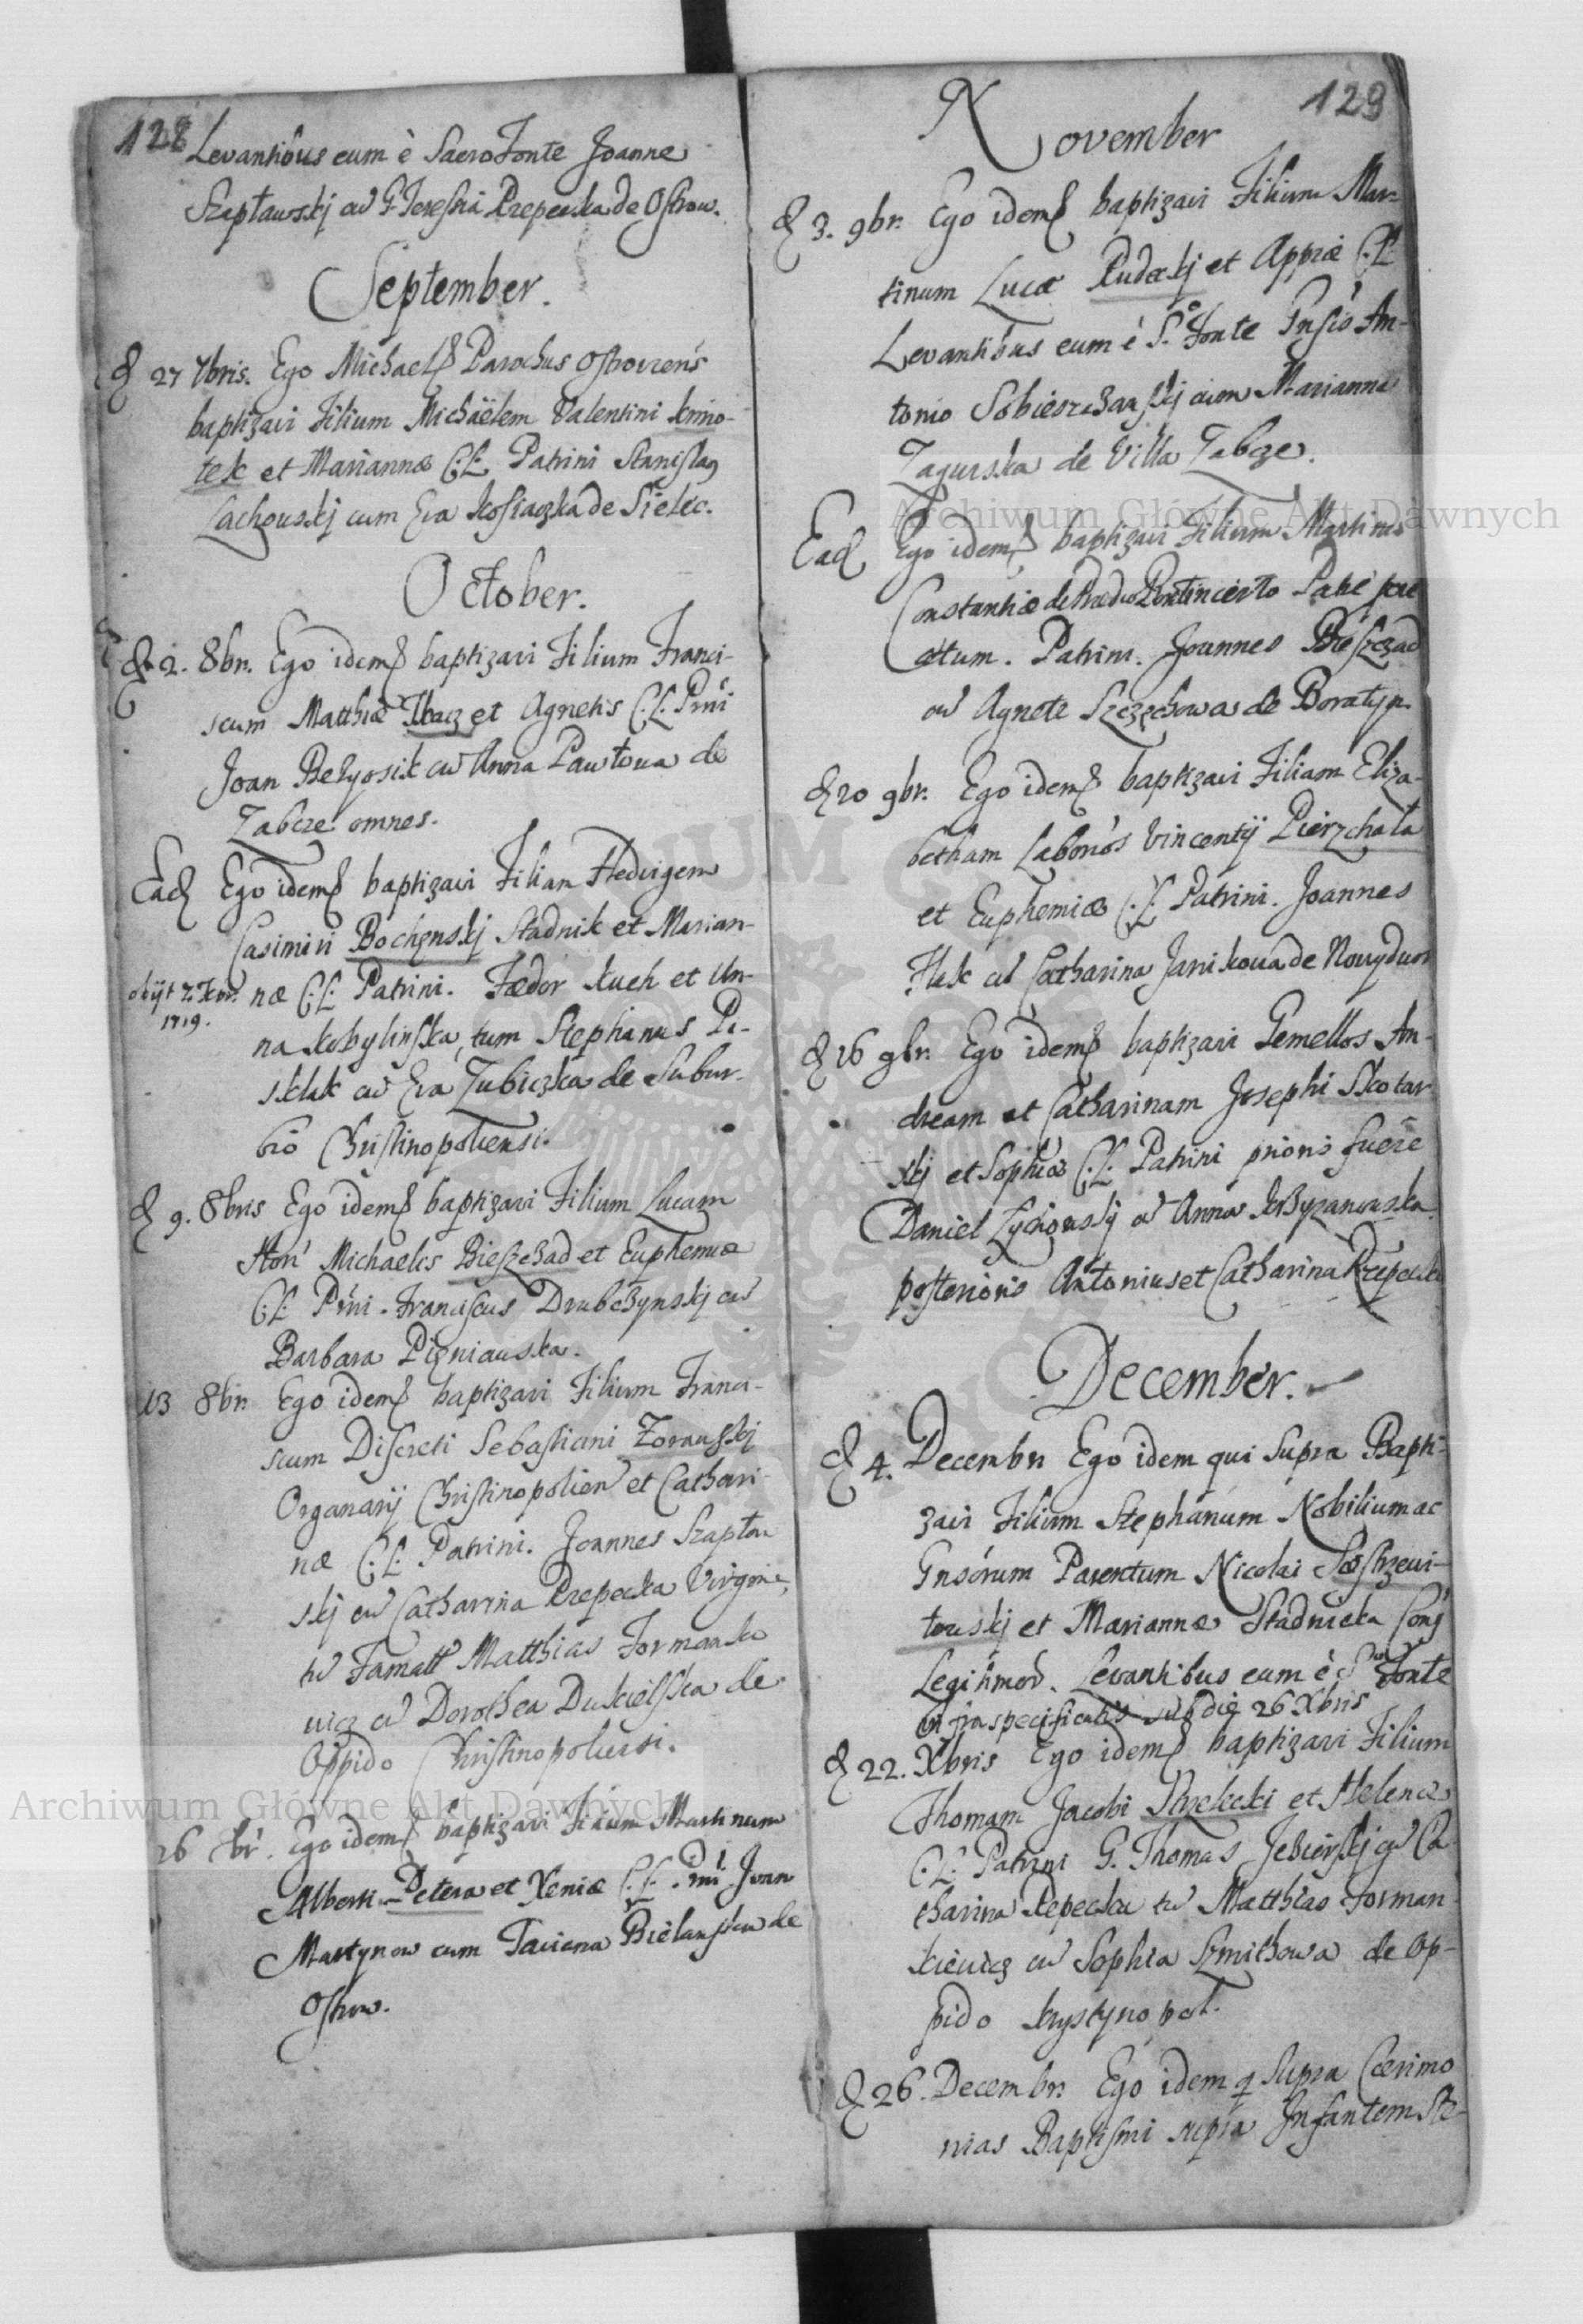 128
Levantibus eum è Sacro Fonte Joanne
Szeptawskj cu G. Teressia Rzepecka de Ostrow.
September.
d 27 7bris. Ego Michael Parochus Ostoviens
baptizavi Filium Michäelem Valentini kmio-
tek et Mariannæ C:L: Patrini Stanislaus
Lachouskj cum Eva Kosiaczka de Sielec.
October.
d 2. 8br. Ego idem baptizavi Filium Franci-
scum Matthiæ Tkacz et Agnetis C:L: Prni
Joan Bezyosik cu Anna Pawłowa de
Zabcze omnes.
Ead Ego idem baptizavi Filiam Hedvigem
Casimiri Bochenskj Stadnik et Marian-
obijt 7br. 1719.
næ C:L: Patrini. Fædor kuch et An-
na kobylinska, tum Stephanus Pi-
sklak cu Eva Zubiczka de Subur-
bio Christinopoliensi.
d 9. 8bris Ego idem baptizavi Filium Lucam
Hon Michaelis Bieszczad et Euphemiæ
C:L: Prni. Franciscus Drubczynskj cu
Barbara Pigniauska.
13 8br. Ego idem baptizavi Filium Franci-
scum Discreti Sebastiani Zorauskj
Organarij Christinopolien et Cathari-
næ C:L: Patrini. Joannes Szaptau
skj cu Catharina Rzepecka Virgine,
tu Famatt Matthias Formanko
uicz cu Dorothea Duskielska de
Oppido Christinopoliensi.
26 8br. Ego idem baptizavi Filium Martinum
Alberti Petera et Xeniæ C:L: Prni Ivan
Martynow cum Taciana Bielanska de
Ostrow.
129
November
d 3. 9br. Ego idem baptizavi Filium Mar-
tinum Lucæ Rudeckj et Appiæ C:L:
Levantibus eum è S. Fonte Gnsio An-
tonio Sobieszczanskj cum Marianna
Zagurska de Villa Zabcze.
Ead Ego idem baptizavi Filium Martinus
Constantiæ de Prædio Incerto Patre pro
atum. Patrini. Joannes Bieszczad
cu Agnete Szczechowa de Boratyn.
d 20 9br. Ego idem baptizavi Filiam Eliza-
betham Labonós Vincentij Pierzchała
et Euphemiæ C:L: Patrini. Joannes
Hak cu Catharina Janikoua de Nouydwor
d 26 9br. Ego idem baptizavi Gemellos An-
dream et Catharinam Josephi Skotar
skj et Sophiæ C:L: Patrini prioris fuere
Daniel Zychouskj cu Anna krzyzanouska
posterioris Antonius et Catharina Rzepecka
December.
d 4. Decembr. Ego idem qui supra Bapti-
zavi Filium Stephanum Nobilium ac
Gnsorum Parentum Nicolai Jastrzewi-
touskj et Mariannæ Stadnicka Conj
Legitimor. Levantibus eum è S. Fonte
infra specificatis sub die 26 Xbris
d 22. Xbris Ego idem baptizavi Filium
Thomam Jacobi Strzelecki et Helenæ
C:L: Patrini G. Thomas Jezierskj cu Ca
tharina Rzepecka tu Matthias Forman-
kieuicz cu Sophia Szmithowa de Op-
pido krystynopol.
d 26. Decembr. Ego idem q supra Cærimo
nias Baptismi supra Infantem Ste-
Archiwum Główne Akt Dawnych
Archiwum Główne Akt Dawnych